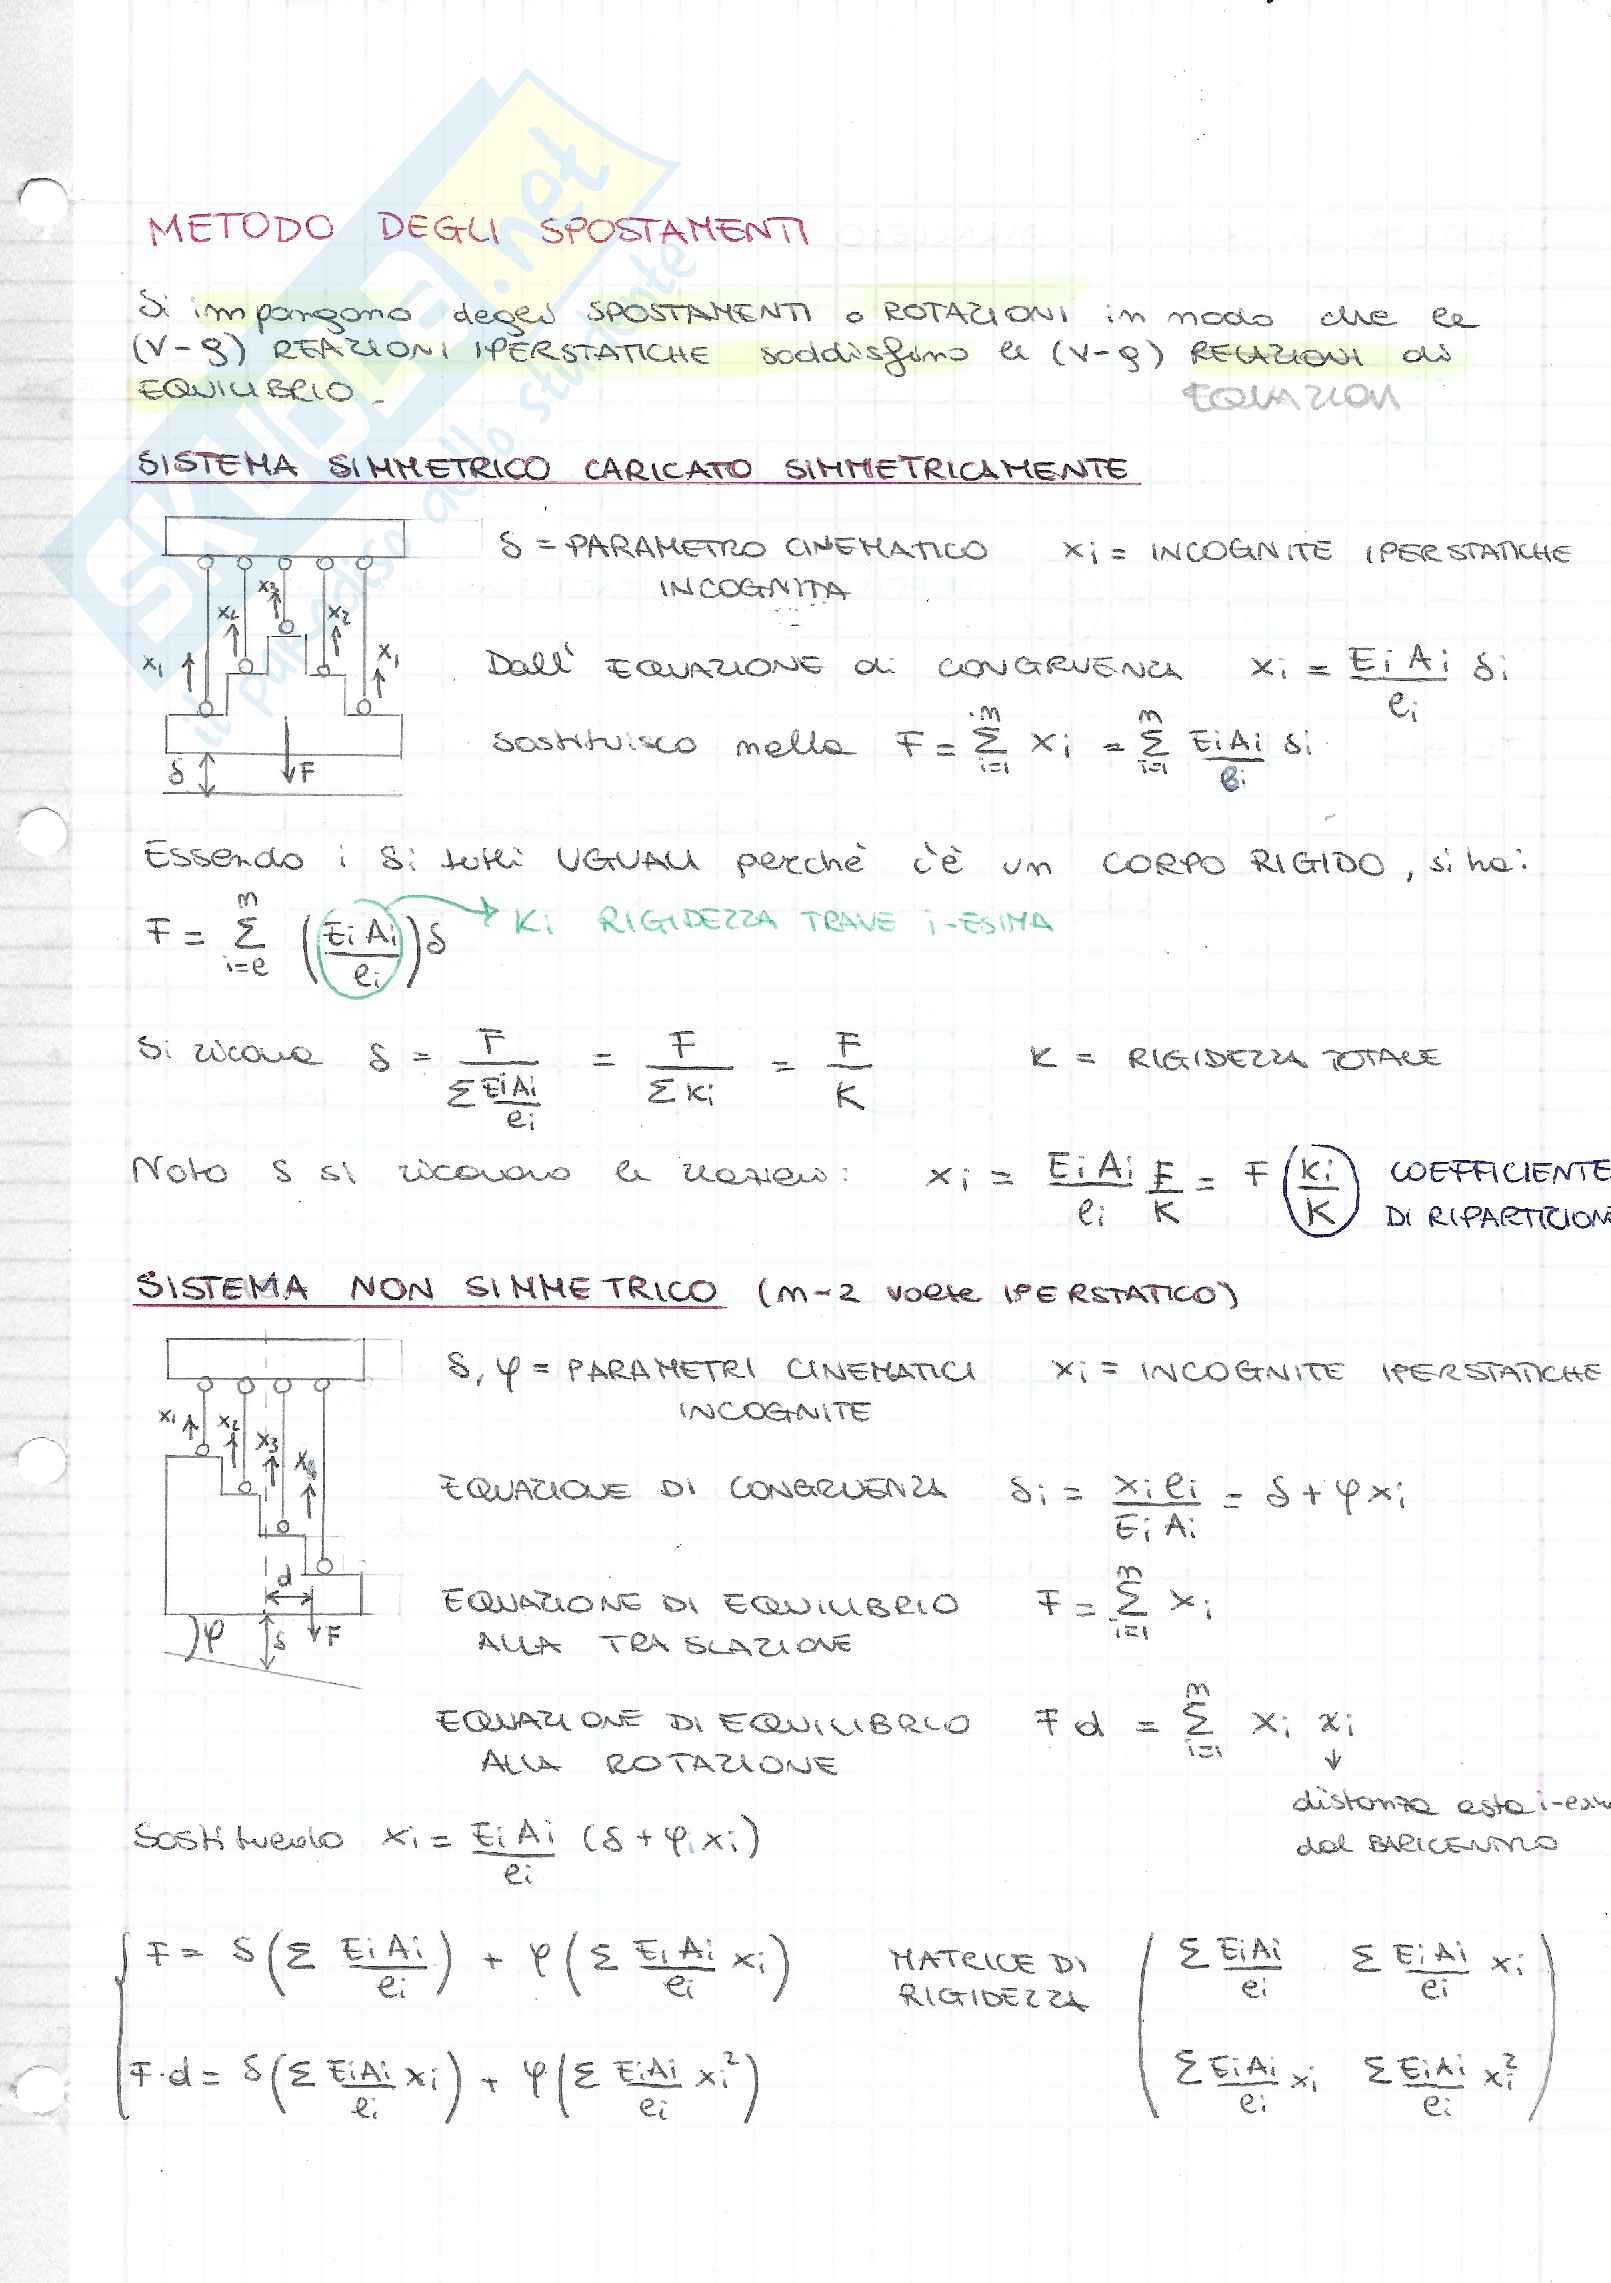 METODO DEGLI SPOSTAMENTI
Si impongono degli SPOSTAMENTI o ROTAZIONI in modo che le
(V-g) REAZIONI IPERSTATICHE soddisfino le (V-g) RELAZIONI di
EQUILIBRIO. EQUAZIONI
SISTEMA SIMMETRICO CARICATO SIMMETRICAMENTE
δ = PARAMETRO CINEMATICO Xi = INCOGNITE IPERSTATICHE
INCOGNITA
X1 X2 X3 X2 X1
Dall' EQUAZIONE di CONGRUENZA Xi = Ei Ai / li δi
sostituisco nella F = Σ(i=1, m) Xi = Σ(i=1, m) Ei Ai / li δi
δ F
Essendo i δi tutti UGUALI perchè c'è un CORPO RIGIDO, si ha:
F = Σ(i=e, m) (Ei Ai / li) δ → Ki RIGIDEZZA TRAVE i-ESIMA
Si ricava δ = F / Σ Ei Ai / li = F / Σ Ki = F / K K = RIGIDEZZA TOTALE
Noto δ si ricavano le reazioni: Xi = Ei Ai / li F / K = F (Ki / K) COEFFICIENTE
DI RIPARTIZION
SISTEMA NON SIMMETRICO (m-2 volte IPERSTATICO)
δ, φ = PARAMETRI CINEMATICI Xi = INCOGNITE IPERSTATICHE
INCOGNITE
X1 X2 X3 X4
EQUAZIONE DI CONGRUENZA δi = Xi li / Ei Ai = δ + φ xi
EQUAZIONE DI EQUILIBRIO F = Σ(i=1, m) Xi
ALLA TRASLAZIONE
d φ δ F
EQUAZIONE DI EQUILIBRIO F d = Σ(i=1, m) Xi xi
ALLA ROTAZIONE
↓
distanza asta i-esi
dal BARICENTRO
Sostituendo Xi = Ei Ai / li (δ + φi xi)
F = δ (Σ Ei Ai / li) + φ (Σ Ei Ai / li xi)
F·d = δ (Σ Ei Ai / li xi) + φ (Σ Ei Ai / li xi²)
MATRICE DI
RIGIDEZZA
Σ Ei Ai / li Σ Ei Ai / li xi
Σ Ei Ai / li xi Σ Ei Ai / li xi²
SKUOLA.net
il paradiso dello studente